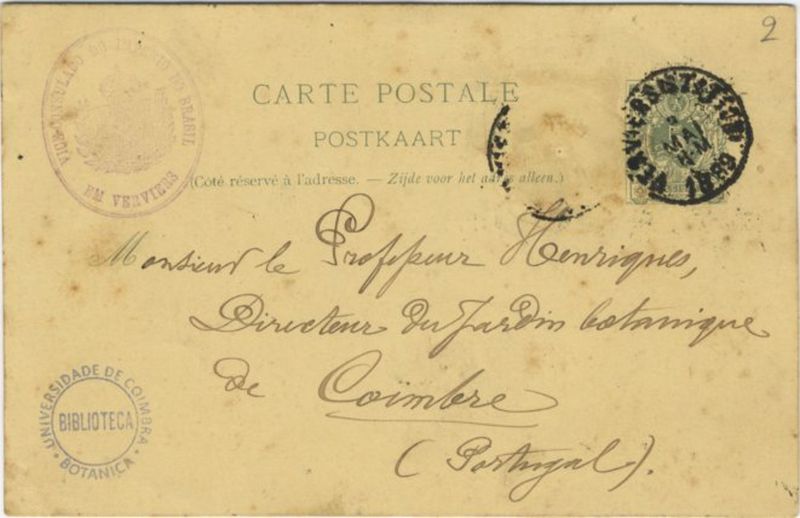 2
VICE-CONSULADO DO IMPERIO DO BRASIL
EM VERVIERS
CARTE POSTALE
POSTKAART
(Côté réservé à l'adresse. — Zijde voor het adres alleen.)
VERVIERS (STATION)
MAI
1889
Monsieur le Professeur Henriques,
Directeur du Jardin botanique
de Coïmbre
(Portugal).
UNIVERSIDADE DE COIMBRA
BIBLIOTECA
BOTANICA